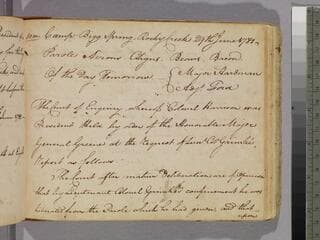 Camp Bigg Spring Rocky Creek 29th June 1781
Parole Citrons Clagus. Beans Bacon
Of the Day Tomorrow { Major Hardman
Adjt Ford
The Court of Enquiry whereof Colonel Harrison was
President Held by order of the Honorable Major
General Greene at the Request of Lieut Col Grimke,
Report as follows.
The Court after mature Deliberation are of Opinion
that by Lieutenant Colonel Grimkés confinement he was
from the Parole which he had given, and that
upon